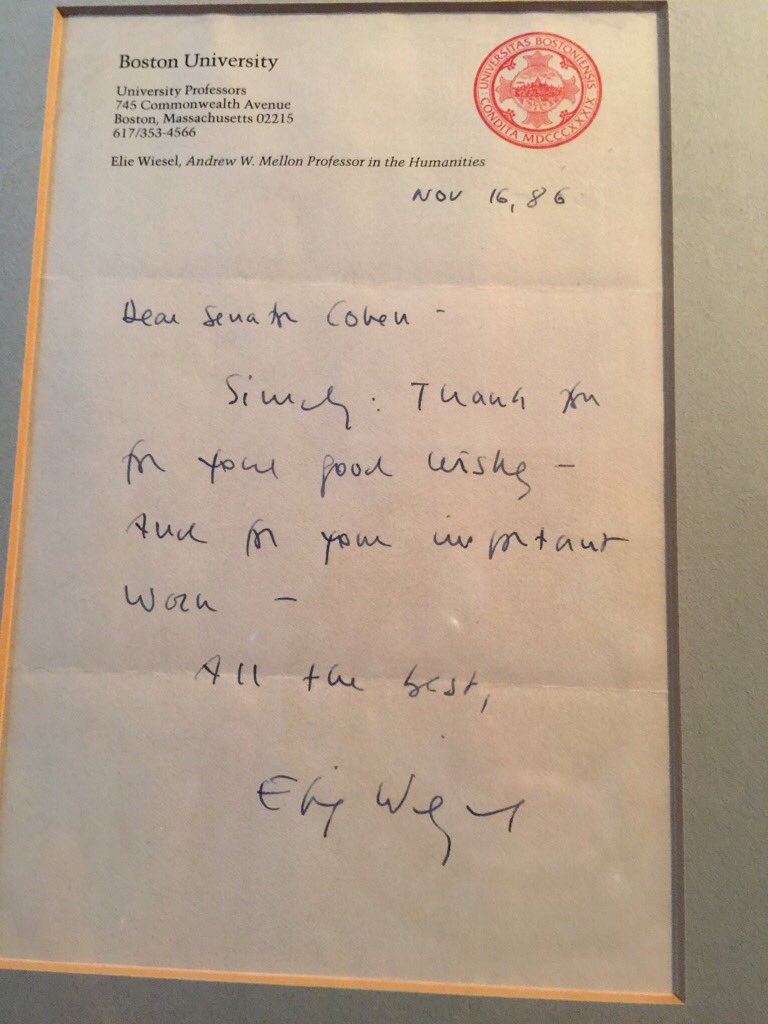 Boston University
University Professors
745 Commonwealth Avenue
Boston, Massachusetts 02215
617/353-4566
Elie Wiesel, Andrew W. Mellon Professor in the Humanities
UNIVERSITAS BOSTONIENSIS
CONDITA MDCCCXXXIX
NOV 16, 86
Dear Senator Cohen -
Simply: Thank you
for your good wishes -
And for your important
work -
All the best,
Elie Wiesel